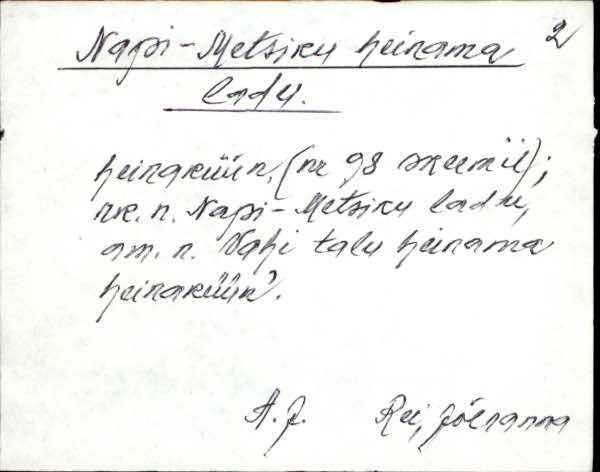 Napi-Metsiku heinama 2
ladu.
heinaküün, (nr 98 skeemil);
rk. n. Napi-Metsiku ladu,
am. n. Vahi talu heinama
heinaküün.
A. J. Rei, Jõelanna